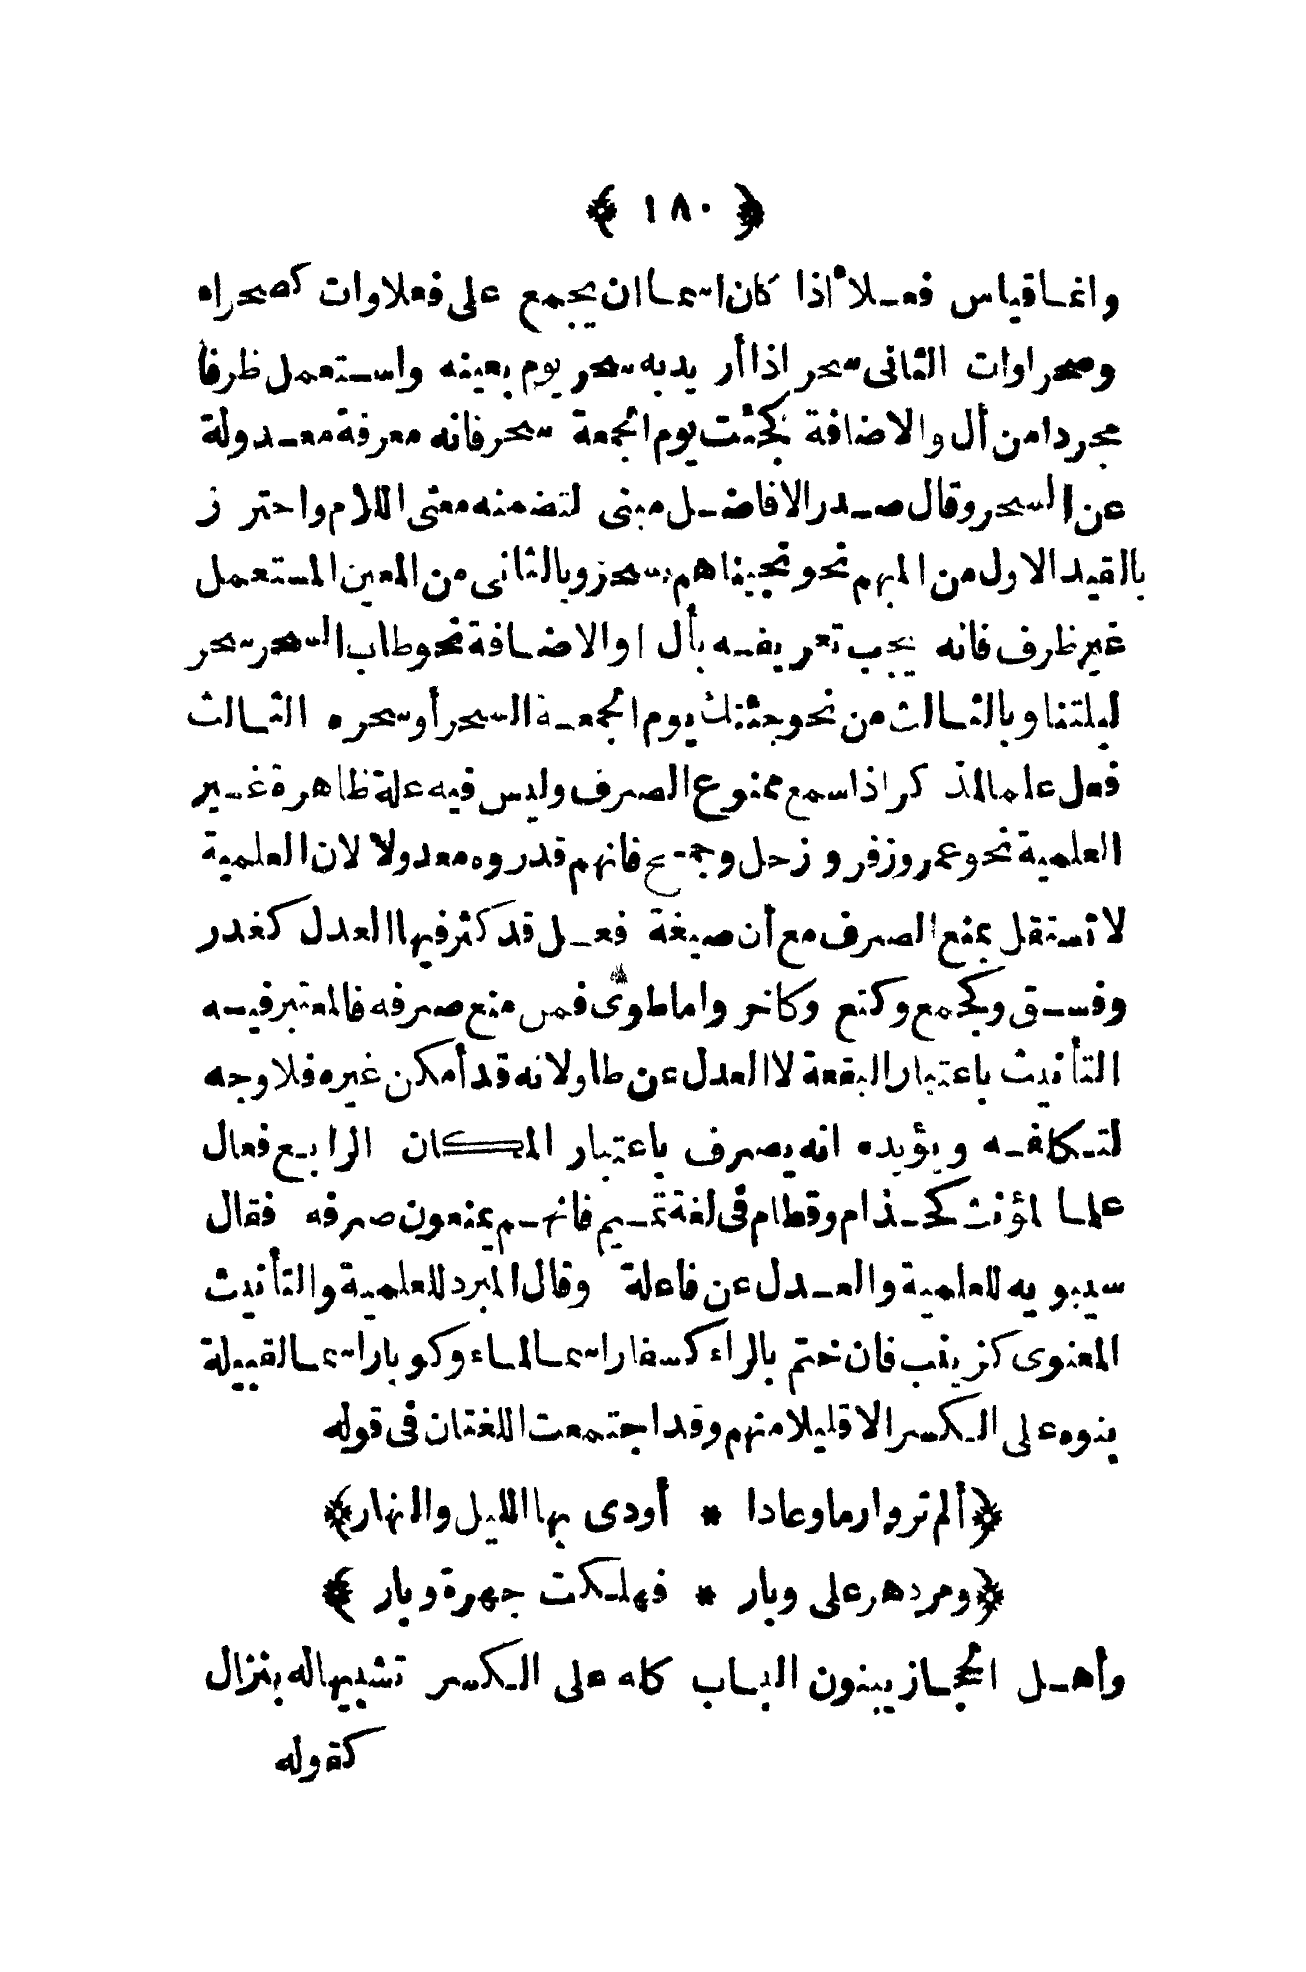 ﴿ ١٨٠ ﴾
وانما قياس فعلاء اذا كان اسما ان يجمع على فعلاوات كصحراء
وصحراوات الثانى سحر اذا أريد به سحر يوم بعينه واستعمل ظرفا
مجردا من أل والاضافة كجئت يوم الجمعة سحر فانه معرفة معدولة
عن السحر وقال صدر الافاضل مبنى لتضمنه معنى اللام واحترز
بالقيد الاول من المبهم نحو نجيناهم بسحر وبالثانى من المعين المستعمل
غير ظرف فانه يجب تعريفه بأل او الاضافة نحو طاب السحر سحر
ليلتنا وبالثالث من نحو جئتك يوم الجمعة السحر أو سحره الثالث
فعل علما لمذكر اذا سمع ممنوع الصرف وليس فيه علة ظاهرة غير
العلمية نحو عمر وزفر وزحل وجمح فانهم قدروه معدولا لان العلمية
لا تستقل بمنع الصرف مع أن صيغة فعل قد كثر فيها العدل كغدر
وفسق وكجمع وكتع وكاخر واما طوى فمن منع صرفه فالمعتبر فيه
التأنيث باعتبار البقعة لا العدل عن طاو لانه قد أمكن غيره فلا وجه
لتكلفه ويؤيده انه يصرف باعتبار المكان الرابع فعال
علما لمؤنث كحذام وقطام فى لغة تميم فانهم يمنعون صرفه فقال
سيبويه للعلمية والعدل عن فاعلة وقال المبرد للعلمية والتأنيث
المعنوى كزينب فان ختم بالراء كسفار اسما لماء وكوبار اسما لقبيلة
بنوه على الكسر الا قليلا منهم وقد اجتمعت اللغتان فى قوله
﴿ألم تروا ارما وعادا * أودى بها الليل والنهار﴾
﴿ومر دهر على وبار * فهلكت جهرة وبار﴾
وأهل الحجاز يبنون الباب كله على الكسر تشبيها له بنزال
كقوله